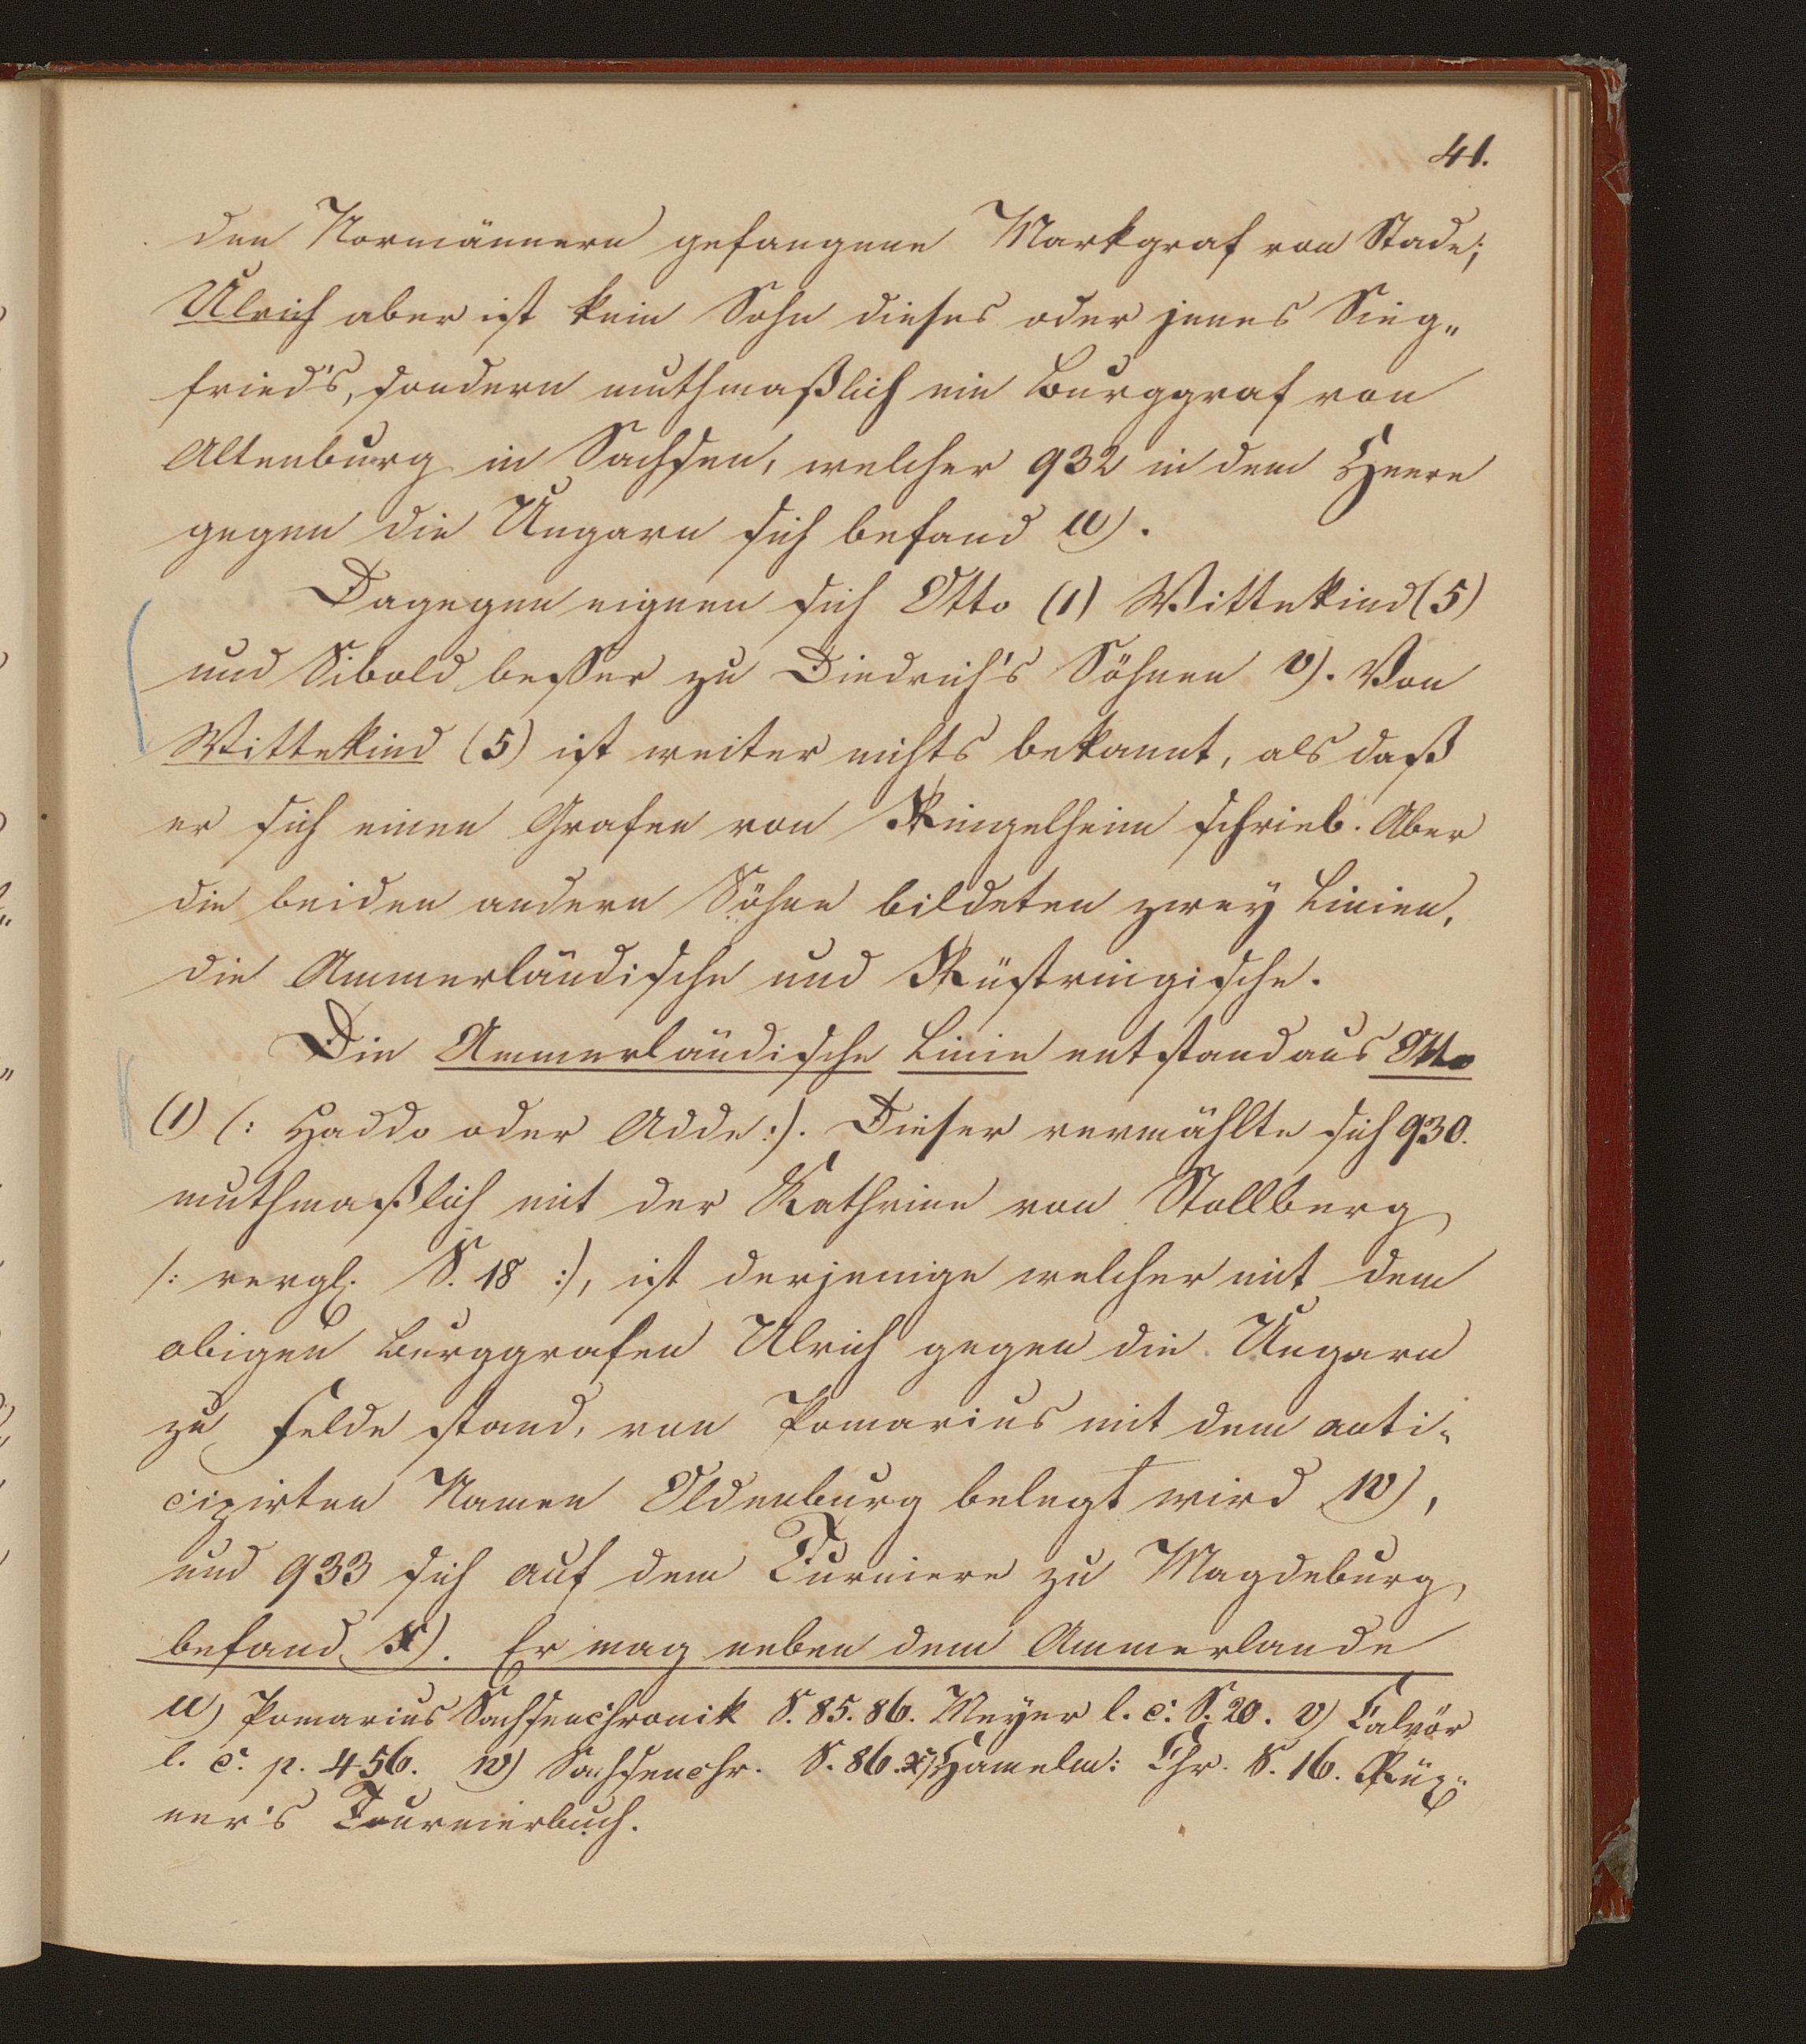 41.
den Normännern gefangene Markgraf von Stade;
Ulrich aber ist kein Sohn dieses oder jenes Sieg„
fried's, sondern muthmaßlich ein Burggraf von
Altenburg in Sachsen, welcher 932 in dem Heere
gegen die Ungarn sich befand u).
Dagegen eignen sich Otto (1) Wittekind (5)
und Sibold besser zu Diedrich's Söhnen v). Von
Wittekind (5) ist weiter nichts bekannt, als daß
er sich einen Grafen von Ringelheim schrieb. Aber
die beiden andern Söhne bildeten zwey Linien,
die Ammerländische und Rüstringische.
Die Ammerländische Linie entstand aus Otto
(1) (: Haddo oder Adde :). Dieser vermählte sich 930.
muthmaßlich mit der Kathrine von Stollberg
/: vergl. S. 18 :/, ist derjenige welcher mit dem
obigen Burggrafen Ulrich gegen die Ungarn
zu Felde stand, von Pomarius mit dem anti„
cipirten Namen Oldenburg belegt wird w),
und 933 sich auf dem Turniere zu Magdeburg
befand x). Er mag neben dem Ammerlande
u) Pomarius Sachsenchronik S. 85. 86. Meyer l. c. S. 20. v) Calvör
l. c. p. 456. w) Sachsenchr. S. 86. x) Hamelm: Chr. S. 16. Rüx„
ner's Tournierbuch.